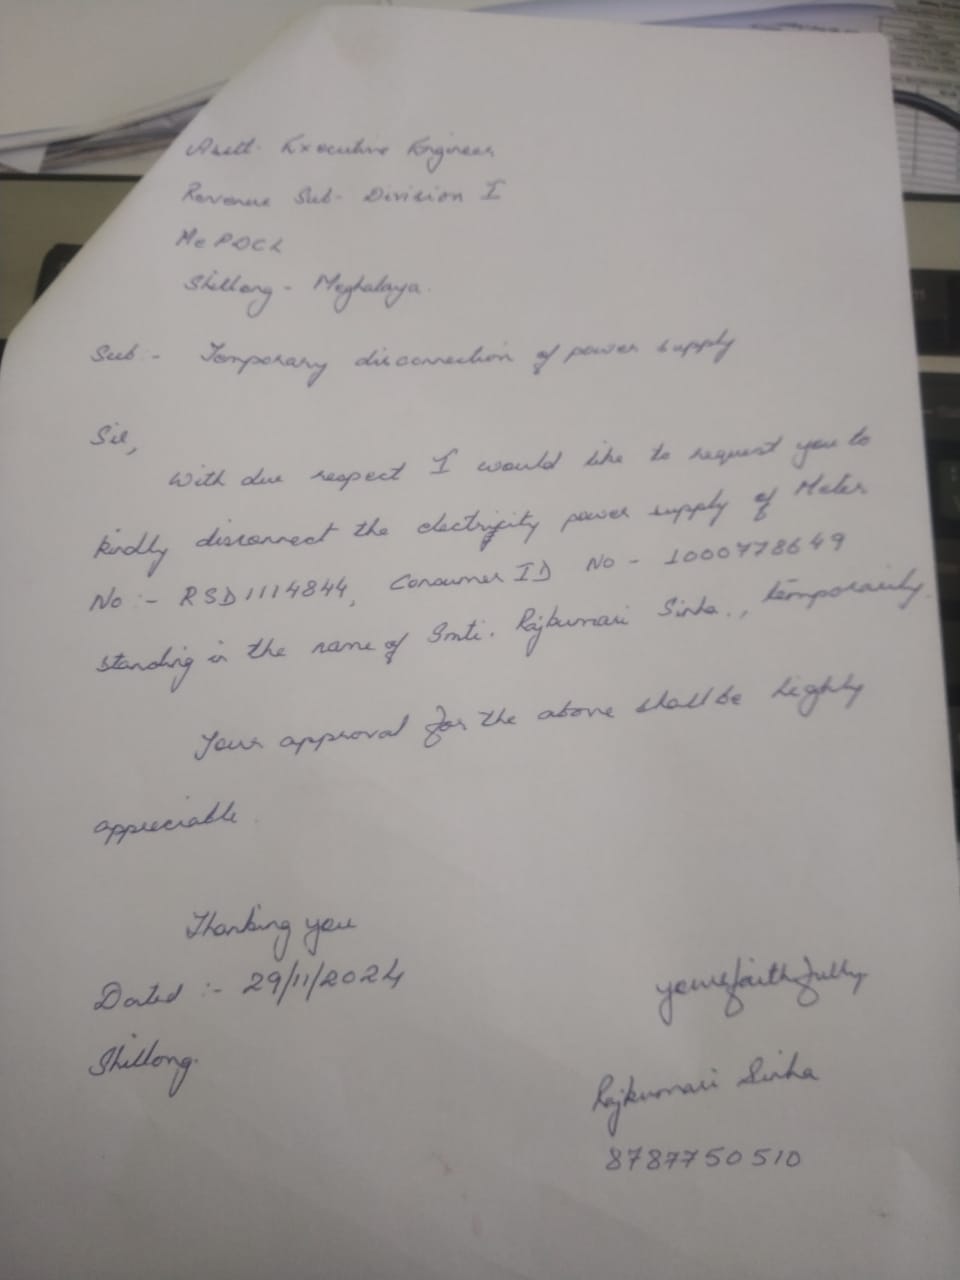 Asstt. Executive Engineer
Revenue Sub- Division I
MePDCL
Shillong - Meghalaya.
Sub:- Temporary disconnection of power supply
Sir,
With due respect I would like to request you to
kindly disconnect the electrifity power supply of Meter
No:- RSD1114844, Consumer ID No - 1000778649
standing in the name of Smti. Rajkumari Sinha., temporarily.
Your approval for the above shall be highly
appreciable.
Thanking you
Dated :- 29/11/2024
yours faithfully
Shillong.
Rajkumari Sinha
8787750510